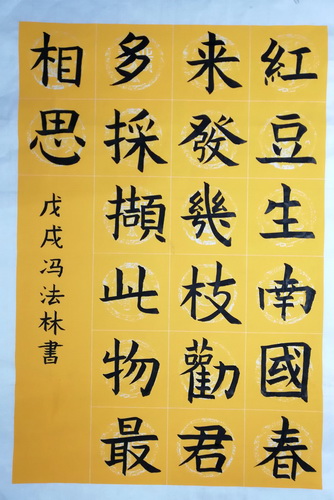 紅豆生南國春
来發幾枝勸君
多採擷此物最
相思
戊戌冯法林書